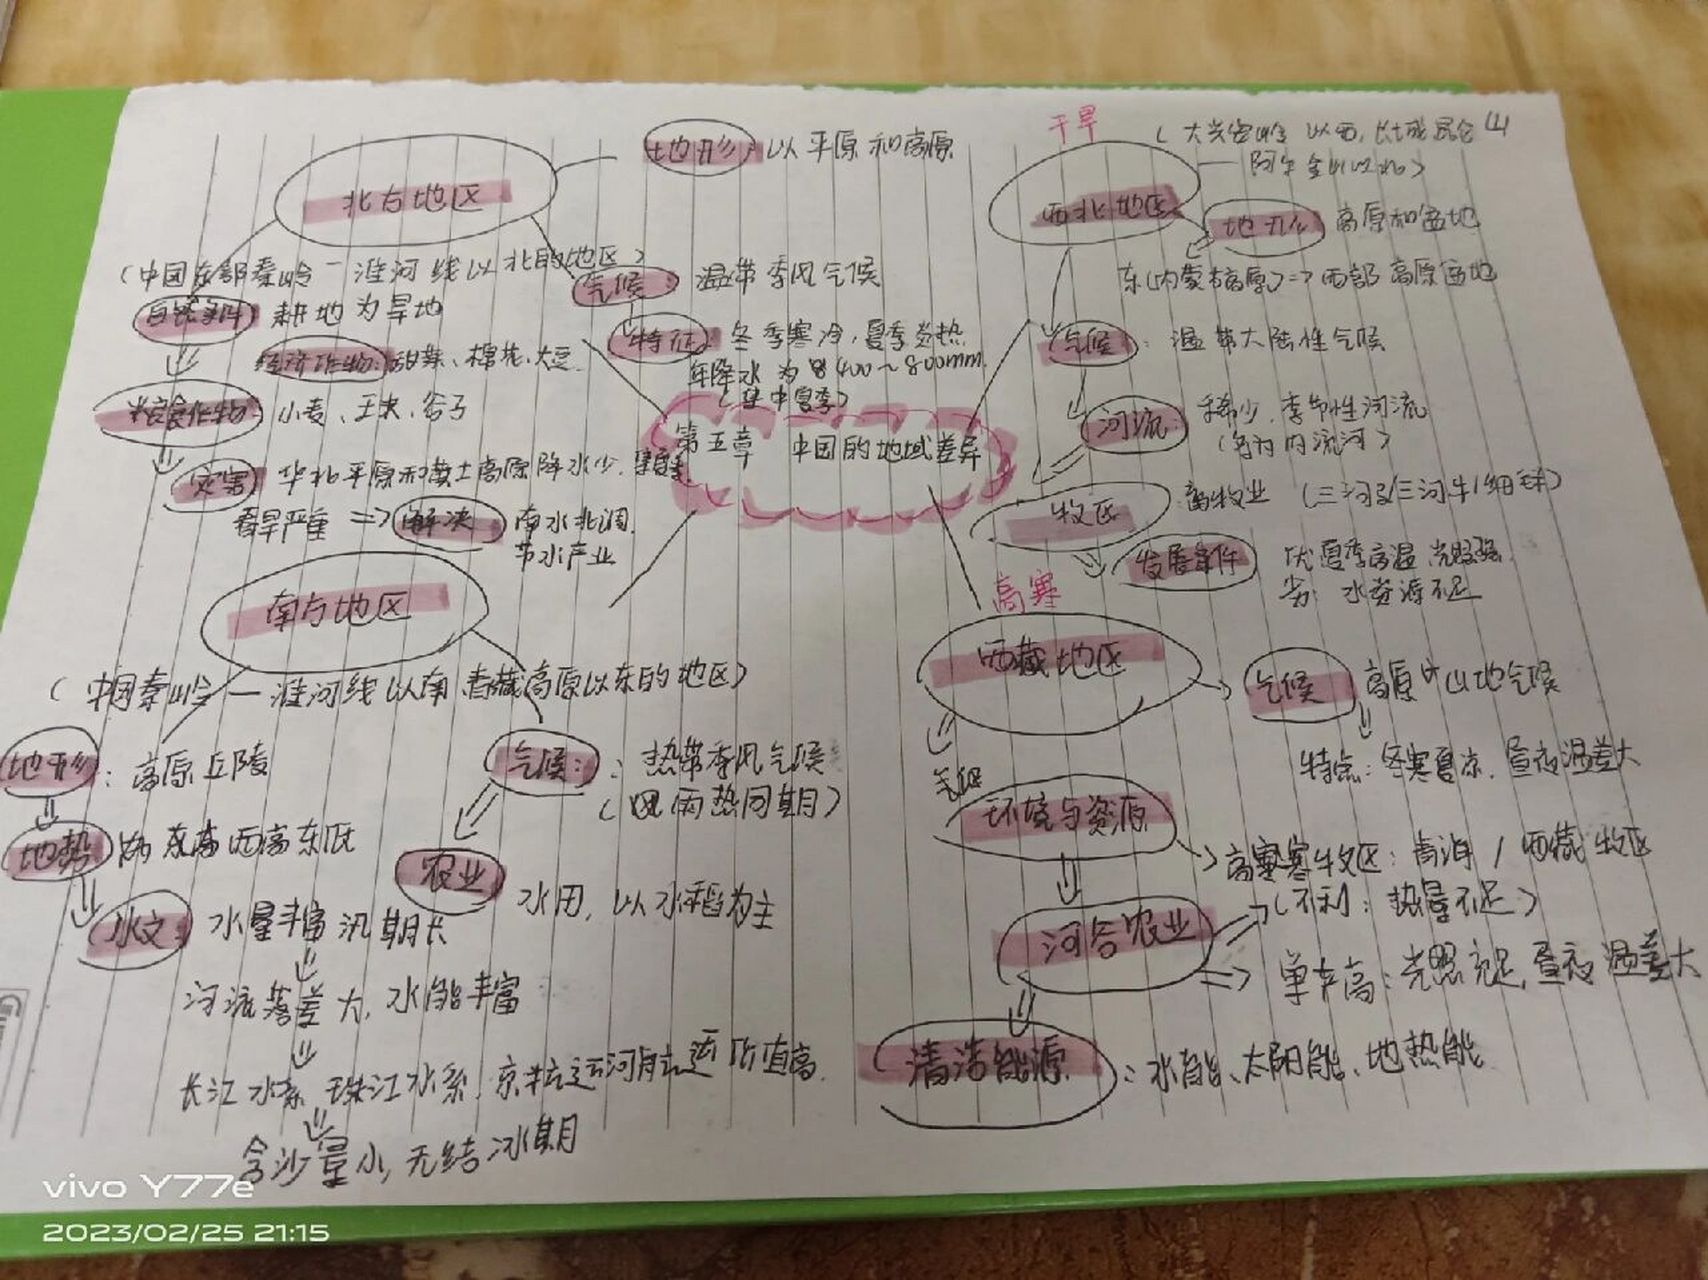 北方地区
地形: 以平原和高原
(中国东部秦岭一淮河线以北的地区)
气候: 温带季风气候
自然条件 耕地为旱地
特征: 冬季寒冷,夏季炎热
年降水为 400~800mm.
(集中夏季)
经济作物: 甜菜、棉花、大豆.
粮食作物: 小麦、玉米、谷子
灾害 华北平原和黄土高原降水少.
春旱严重 => 解决 南水北调.
节水产业
第五章 中国的地域差异
干旱
(大兴安岭以西, 长城 昆仑山
阿尔金山以北)
西北地区
地形 高原和盆地
东(内蒙古高原) => 西部高原盆地
气候: 温带大陆性气候
河流: 稀少. 季节性河流
(多为内流河)
牧区 畜牧业 (三河马/三河牛/细毛羊)
发展条件 优 夏季高温.光照强.
劣: 水资源不足
南方地区
(中国秦岭一淮河线以南.青藏高原以东的地区)
地形: 高原丘陵
气候: : 热带季风气候
(雨热同期)
地势 西高东低
农业 水田, 以水稻为主
水文: 水量丰富 汛期长
河流落差大, 水能丰富
长江水系 珠江水系. 京杭运河航运价值高.
含沙量小, 无结冰期
高寒
西藏地区
气候 高原山地气候
特点: 冬寒夏凉. 昼夜温差大
气候
环境与资源
高寒牧区: 青海/西藏牧区
(不利: 热量不足)
河谷农业
单产高: 光照充足, 昼夜温差大
清洁能源 : 水能、太阳能、地热能
vivo Y77e
2023/02/25 21:15